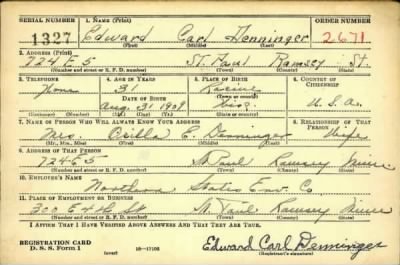 SERIAL NUMBER 1. NAME (Print) ORDER NUMBER
1327 Edward Carl Denninger 2671
(First) (Middle) (Last)
2. ADDRESS (Print)
724 E 5 ST. Paul Ramsey St.
(Number and street or R. F. D. number) (Town) (County) (State)
3. TELEPHONE 4. AGE IN YEARS 5. PLACE OF BIRTH 6. COUNTRY OF CITIZENSHIP
None 31 Racine
DATE OF BIRTH (Town or county)
Aug. 31 1909 Wisc. U.S.A.
(Mo.) (Day) (Yr.) (State or country)
7. NAME OF PERSON WHO WILL ALWAYS KNOW YOUR ADDRESS 8. RELATIONSHIP OF THAT PERSON
Mrs. E. Denninger Wife
(Mr., Mrs., Miss) (First) (Middle) (Last)
9. ADDRESS OF THAT PERSON
724 E 5 St. Paul Ramsey Minn.
(Number and street or R. F. D. number) (Town) (County) (State)
10. EMPLOYER'S NAME
Northern States Co
11. PLACE OF EMPLOYMENT OR BUSINESS
300 E 4th St St. Paul Ramsey Minn
(Number and street or R. F. D. number) (Town) (County) (State)
I AFFIRM THAT I HAVE VERIFIED ABOVE ANSWERS AND THAT THEY ARE TRUE.
REGISTRATION CARD
D. S. S. Form 1 (over) Edward Carl Denninger
(Registrant's signature)